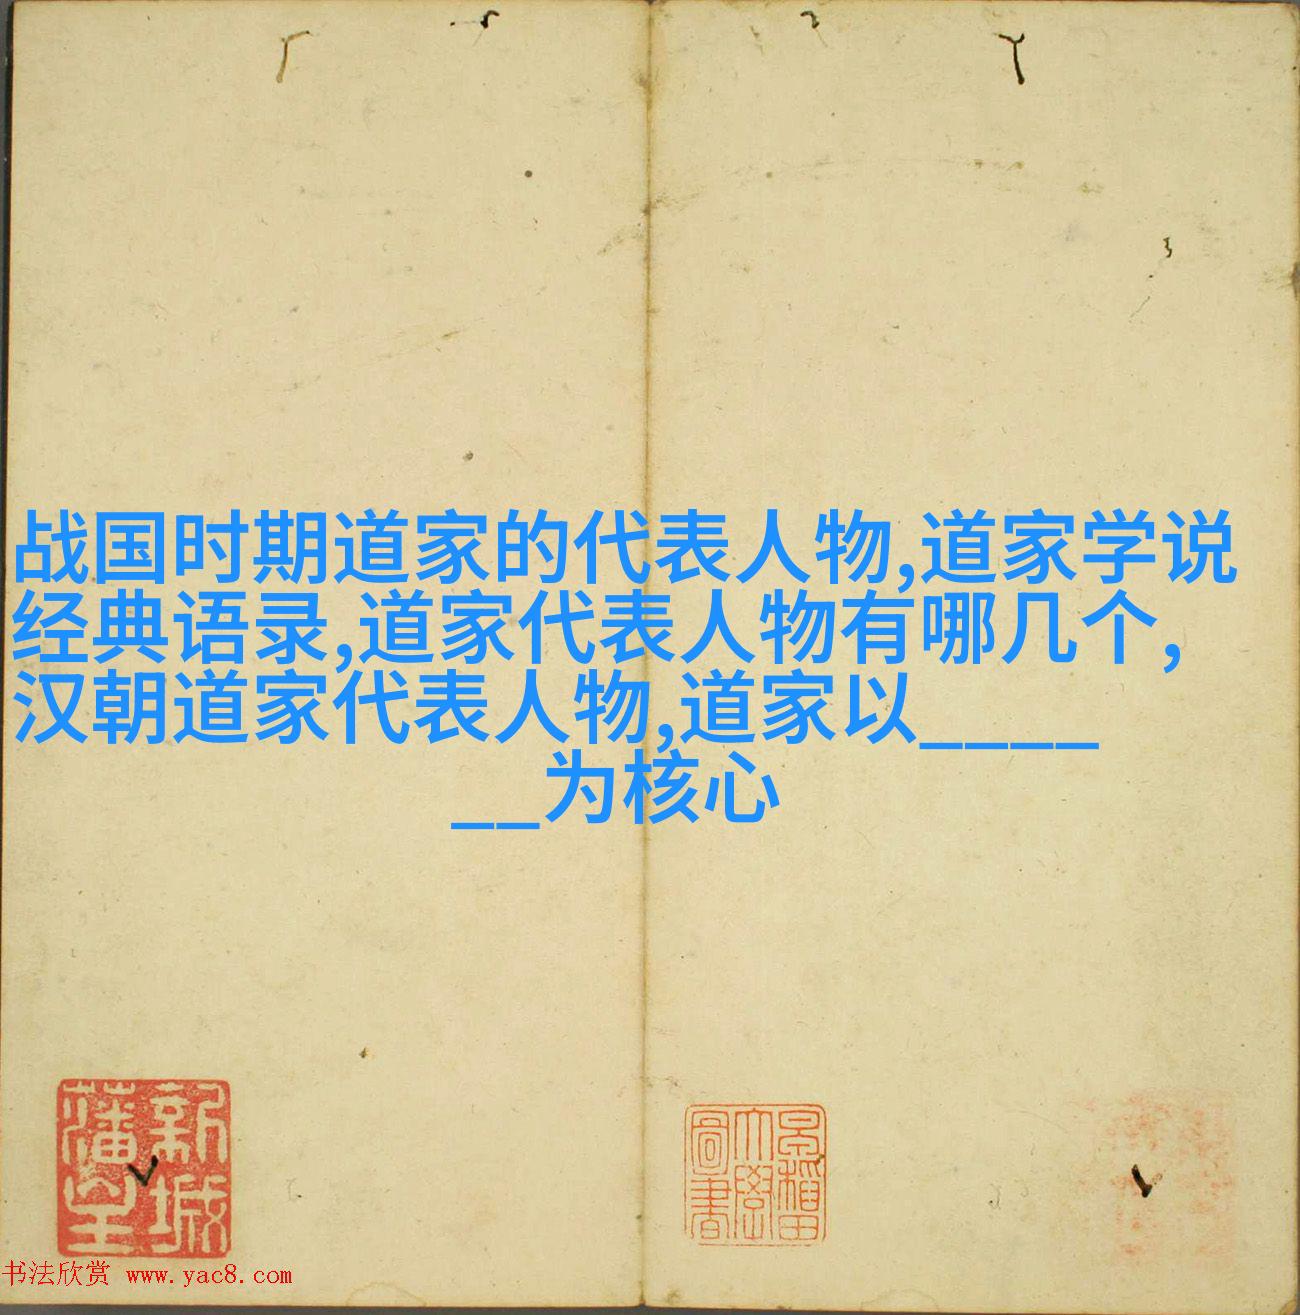 战国时期道家的代表人物,道家学说
经典语录,道家代表人物有哪几个,
汉朝道家代表人物,道家以____
__为核心
新城
藩室
早稲田
大學
圖書
书法欣赏 www.yac8.com